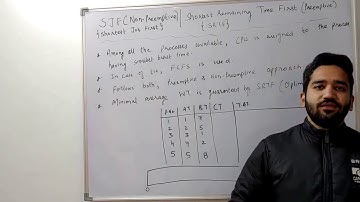 SJF (Non Preemptive) | Shortest Remaining Time First (Preemptive)
{Shortest Job First} {SRTF}
* Among all the Processes available, CPU is assigned to the process
having smallest burst time.
* In Case of tie, FCFS is used
* Follows both, Preemptive & Non-Preemptive approach
* Minimal average WT is guaranteed by SRTF (Optim
P.No A.T B.T CT T.AT
1 1 7
2 2 5
3 3 1
4 4 2
5 5 8